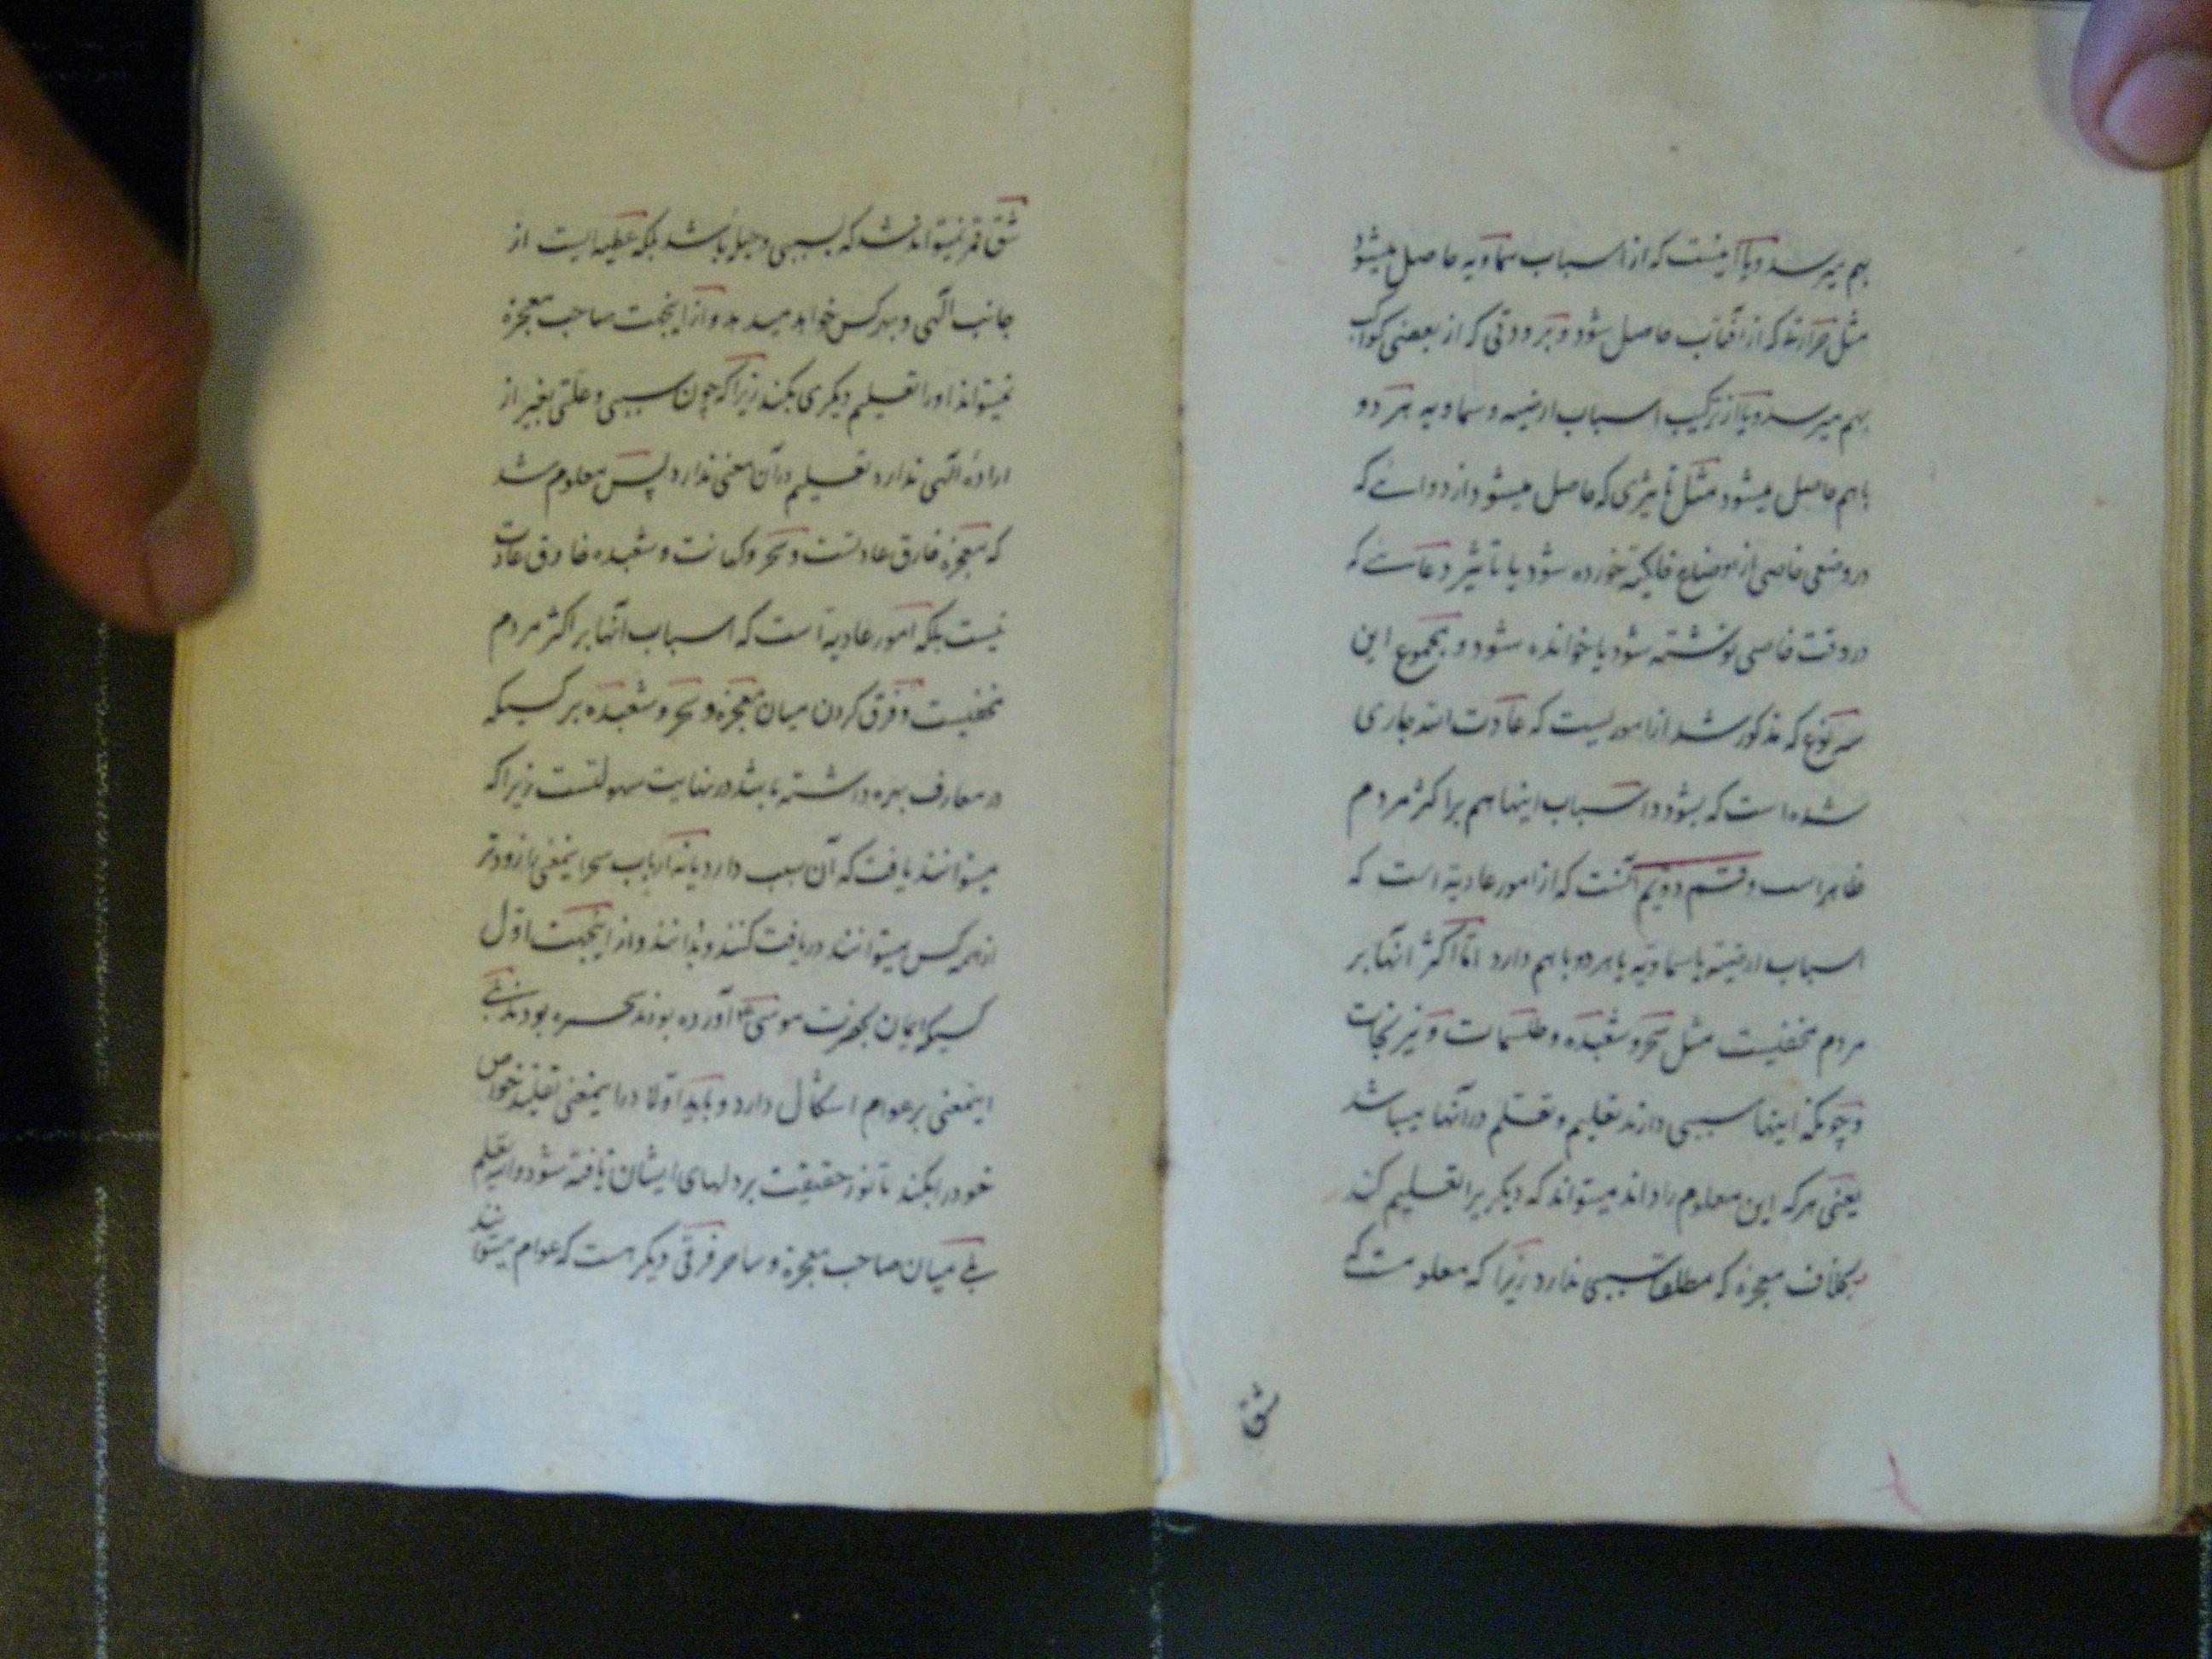 بهم میرسد و یا آینست که از اسباب سماویه حاصل میشود
مثل حرارتیکه از آفتاب حاصل شود و برودتی که از بعضی کواکب
بهم میرسد و یا از ترکیب اسباب ارضیه و سماویه هر دو
باهم حاصل میشود مثل تاثیری که حاصل میشود از دوائے که
در وضعی خاصی از اوضاع فلکیه خورده شود یا تاثیر دعائے که
در وقت خاصی نوشته شود یا خوانده شود و مجموع این
سه نوع که مذکور شد از اموریست که عادت الله جاری
شده است که بشود و اسباب اینها هم بر اکثر مردم
ظاهر است و قسم دویم آنست که از امور عادیه است که
اسباب ارضیه یا سماویه یا هر دو باهم دارد امّا اکثر آنها بر
مردم مخفیست مثل سحر و شعبده و طلسمات و نیرنجات
و چونکه اینها سببی دارند تعلیم و تعلم در آنها میباشد
یعنی هر که این معلوم را داند میتواند که دیگریرا تعلیم کند
بخلاف معجزه که مطلقا سببی ندارد زیرا که معلومست که
شق
شق قمر نمیتواند شد که بسببی و حیله باشد بلکه عطیه ایست از
جانب الٓهی و بهر کس خواهد میدهد و از اینجهت صاحب معجزه
نمیتواند او را تعلیم دیگری بکند زیرا که چون سببی و علّتی بغیر از
ارادهٔ الٓهی ندارد تعلیم در آن معنی ندارد پس معلوم شد
که معجزه خارق عادتست و سحر و کهانت و شعبده خارق عادت
نیست بلکه امور عادیه است که اسباب آنها بر اکثر مردم
مخفیست و فرق کردن میان معجزه و سحر و شعبده بر کسیکه
در معارف بهره داشته باشد در نهایت سهولتست زیرا که
میتوانند یافت که آن سبب دارد یا نه ارباب سحر اینمعنی را زودتر
از همه کس میتوانند دریافت کنند و بدانند و از اینجهت اوّل
کسیکه ایمان بحضرت موسی ع آورده بودند سحره بودند بلے
اینمعنی بر عوام اشکال دارد و باید اوّلا در اینمعنی تقلید خواص
خود را بکنند تا نور حقیقت بر دلهای ایشان تافته شود و الله یعلم
بلے میان صاحب معجزه و ساحر فرقی دیگر هست که عوام میتوانند